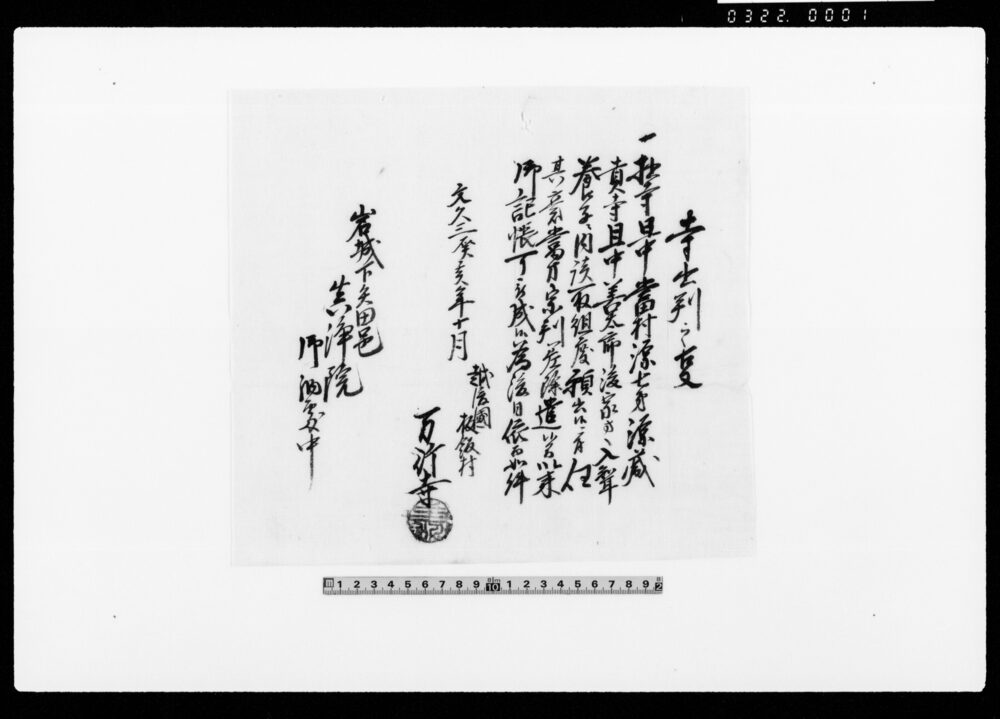 0322. 0001
寺出判之事
一拙寺旦中當村源七弟源蔵
貴寺且中善太前後家方入聟
養子ニ内談取組度願出候ニ付任
其意當方宗判差除遣候以来
御記帳可被成候為後日依而如件
文久三癸亥年十月
越後國
板飯村
万行寺
岩城下矢田邑
真浄院
御納處中
1 2 3 4 5 6 7 8 9 10 1 2 3 4 5 6 7 8 9